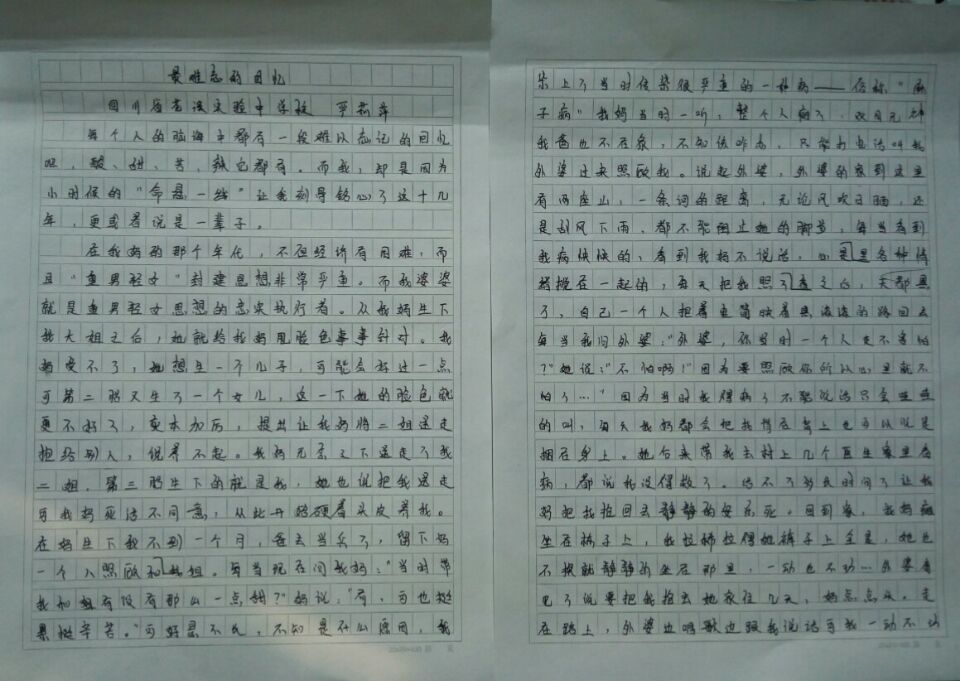 最难忘的回忆
四川省苍溪实验中学校 严莉萍
每个人的脑海中都有一段难以忘记的回忆
吧,酸、甜、苦、辣也都有。而我,却是因为
小时候的“命悬一线”让我刻骨铭心了这十几
年,更或者说是一辈子。
在我妈的那个年代,不但经济有困难,而
且“重男轻女”封建思想非常严重。而我婆婆
就是重男轻女思想的忠实执行者。从我妈生下
我大姐之后,她就给我妈甩脸色事事针对。我
妈受不了,她想生一个儿子,可能会好过一点
可第二胎又生了一个女儿,这一下她的脸色就
更不好了,变本加厉,提出让我妈将二姐送走
抱给别人,说养不起。我妈无奈之下送走了我
二姐,第三胎生下的就是我,她也说把我送走
可我妈死活不同意,从此我妈硬着头皮养我。
在妈生下我不到一个月,爸去当兵了,留下妈
一个人照顾我和姐。每当现在问我妈:“当时带
我和姐有没有那么一点甜?”妈说:“有,可也挺
累挺辛苦。”可好景不长,不知是什么原因,我
染上了当时传染很严重的一种病——俗称“麻
子病”我妈当时一听,整个人痴了,双目无神
我爸也不在家,不知该咋办,只能打电话叫我
外婆过来照顾我。说起外婆,外婆的家到这里
有两座山,一条河的距离,无论风吹日晒,还
是刮风下雨,都不能阻止她的脚步,每当看到
我病怏怏的,看到我妈不说话,心里是各种情
绪搅在一起的,每天把我照了之后,天都黑
了,自己一个人把着电筒映着黑漆漆的路回去
每当我问外婆:“外婆,你当时一个人走不害怕
?”她说:“不怕啊!”因为要照顾你所以心里就不
怕了…”因为当时我得病了不能说话只会哇哇
的叫,每天我妈都会把我背在背上也可以说是
捆在身上。她后来带我去村上几个医生家里看
病,都说我没得救了。活不了多长时间了让我
妈把我抱回去静静的安乐死。回到家,我妈瘫
坐在椅子上,我拉稀拉得她裤子上全是,她也
不换就静静的坐在那里,一动也不动…外婆看
见了说要把我抱去她家住几天,妈点点头。走
在路上,外婆边唱歌边跟我说话可我一动不动